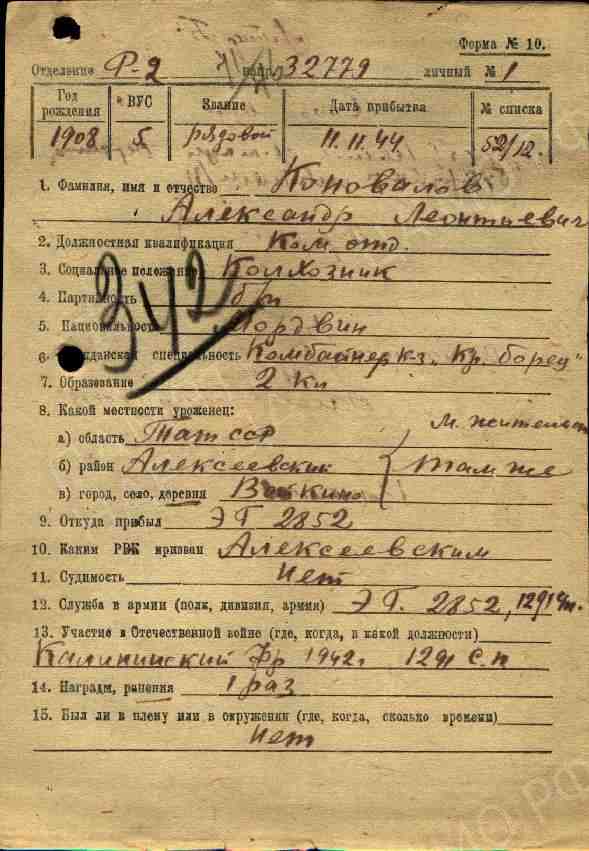 Форма № 10.
Отделение Р-2 32779 личный № 1
Год рождения ВУС Звание Дата прибытия № списка
1908 5 рядовой 11.11.44 52/12.
1. Фамилия, имя и отчество Коновалов
Александр Леонтиевич
2. Должностная квалификация Ком. отд.
3. Социальное положение Колхозник
4. Партийность б/п
5. Национальность Мордвин
6. Гражданская специальность Комбайнер кз „Кр. борец"
7. Образование 2 кл
8. Какой местности уроженец: М. жительст
а) область Тат сср
б) район Алексеевский там же
в) город, село, деревня Войкино
9. Откуда прибыл ЭГ 2852
10. Каким РВК призван Алексеевским
11. Судимость Нет
12. Служба в армии (полк, дивизия, армия) ЭГ. 2852, 1291
13. Участие в Отечественной войне (где, когда, в какой должности)
Калининский фр 1942г 1291 с.п
14. Награды, ранения 1 раз
15. Был ли в плену или в окружении (где, когда, сколько времени)
Нет
342